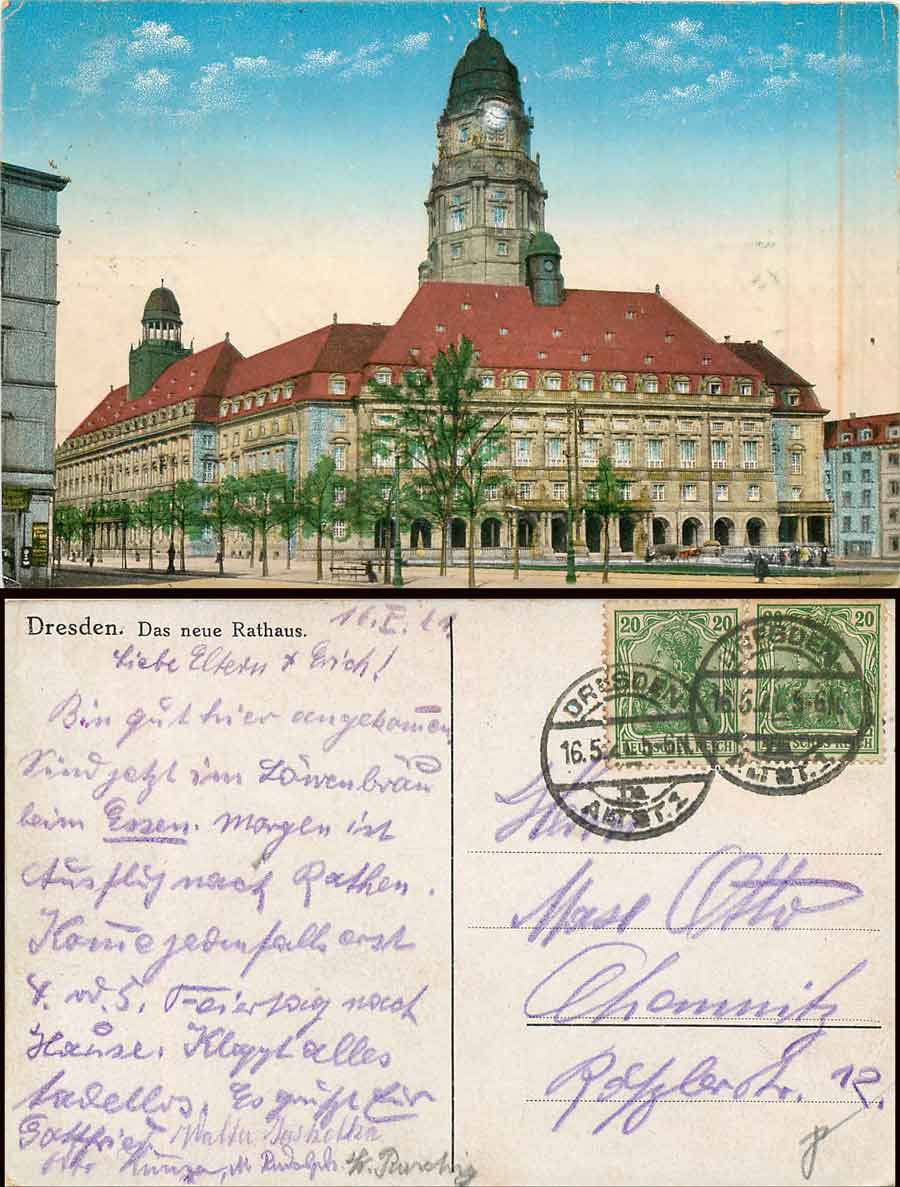 Dresden. Das neue Rathaus.
16.5.21.
Liebe Eltern & Erich!
Bin gut hier angekommen
Sind jetzt im Löwenbräu
beim Essen. Morgen ist
Ausflug nach Rathen.
Komme jedenfalls erst
4. od. 5. Feiertag nach
Hause. Klappt alles
tadellos. Es grüßt Euer
Gottfried Walter
Otto Kunze, M. Rudolph.
20 20
DEUTSCHES REICH
20 20
DEUTSCHES REICH
DRESDEN
16.5.21. 5-6N.
ALTST. 1
DRESDEN
16.5.21. 5-6N.
ALTST. 1
Herrn
Max Otto
Chemnitz
Rößlerstr. 12.